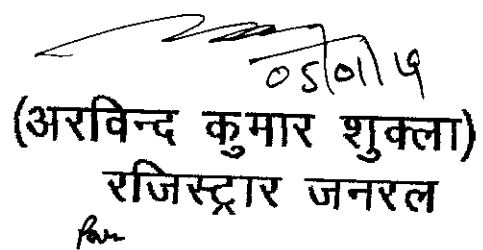 05/01/15
(अरविन्द कुमार शुक्ला)
रजिस्ट्रार जनरल